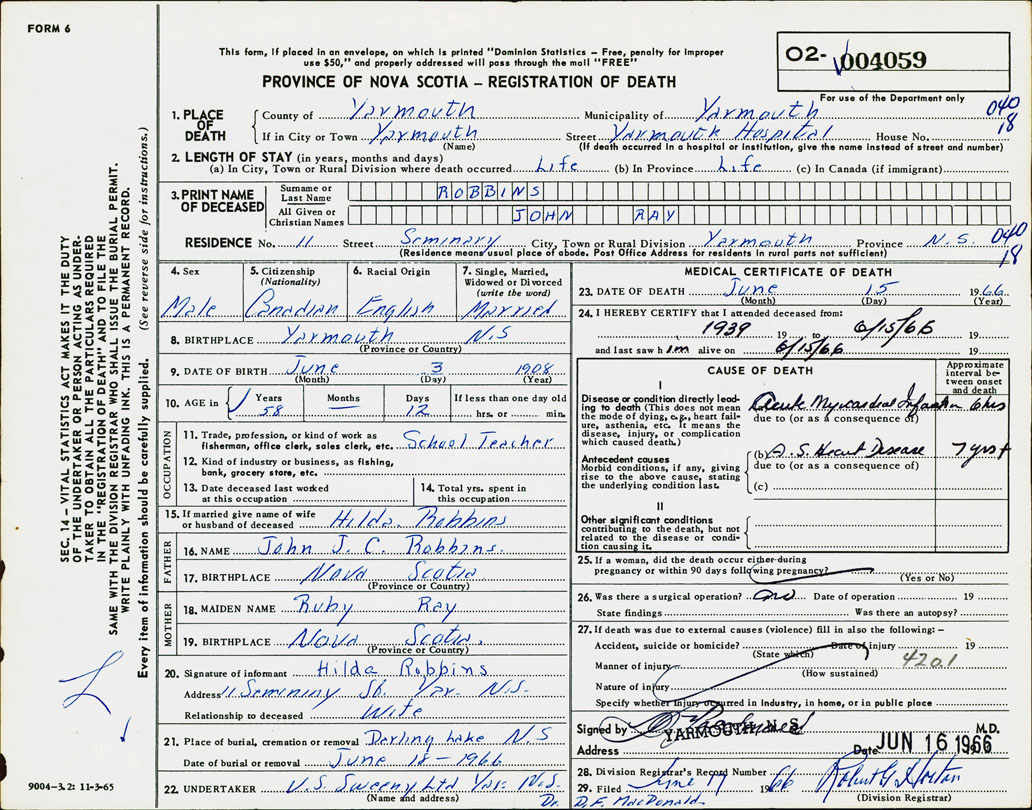 FORM 6
This form, if placed in an envelope, on which is printed "Dominion Statistics – Free, penalty for improper
use $50," and properly addressed will pass through the mail "FREE"
PROVINCE OF NOVA SCOTIA – REGISTRATION OF DEATH
02- 004059
For use of the Department only
040
18
1. PLACE OF DEATH
County of Yarmouth Municipality of Yarmouth
If in City or Town Yarmouth Street Yarmouth Hospital House No.
(Name) (If death occurred in a hospital or institution, give the name instead of street and number)
2. LENGTH OF STAY (in years, months and days)
(a) In City, Town or Rural Division where death occurred Life (b) In Province Life (c) In Canada (if immigrant)
3. PRINT NAME OF DECEASED
Surname or Last Name ROBBINS
All Given or Christian Names JOHN RAY
RESIDENCE No. 11 Street Seminary City, Town or Rural Division Yarmouth Province N.S. 040
18
(Residence means usual place of abode. Post Office Address for residents in rural parts not sufficient)
4. Sex Male
5. Citizenship (Nationality) Canadian
6. Racial Origin English
7. Single, Married, Widowed or Divorced (write the word) Married
8. BIRTHPLACE Yarmouth N.S
(Province or Country)
9. DATE OF BIRTH June 3 1908
(Month) (Day) (Year)
10. AGE in Years 58 Months — Days 12 If less than one day old hrs. or min.
OCCUPATION
11. Trade, profession, or kind of work as
fisherman, office clerk, sales clerk, etc. School Teacher
12. Kind of industry or business, as fishing,
bank, grocery store, etc.
13. Date deceased last worked
at this occupation
14. Total yrs. spent in
this occupation
15. If married give name of wife
or husband of deceased Hilda Robbins
FATHER
16. NAME John J. C. Robbins.
17. BIRTHPLACE Nova Scotia
(Province or Country)
MOTHER
18. MAIDEN NAME Ruby Ray
19. BIRTHPLACE Nova Scotia.
(Province or Country)
20. Signature of informant Hilda Robbins
Address 11 Seminiry St. Yar- N.S.
Relationship to deceased Wife
21. Place of burial, cremation or removal Darling Lake N.S
Date of burial or removal June 18-1966
22. UNDERTAKER V.S. Sweeny Ltd Yar. N.S.
(Name and address)
MEDICAL CERTIFICATE OF DEATH
23. DATE OF DEATH June 15 1966
(Month) (Day) (Year)
24. I HEREBY CERTIFY that I attended deceased from:
1939 19 to 6/15/66 19
and last saw him alive on 6/15/66 19
CAUSE OF DEATH
Approximate interval between onset and death
I
Disease or condition directly leading to death (This does not mean
the mode of dying, e.g., heart failure, asthenia, etc. It means the
disease, injury, or complication
which caused death.)
Acute Myocardial Infarction 6 hrs
due to (or as a consequence of)
Antecedent causes
Morbid conditions, if any, giving
rise to the above cause, stating
the underlying condition last.
(b) A.S. Heart Disease 7 yrs +
due to (or as a consequence of)
(c)
II
Other significant conditions
contributing to the death, but not
related to the disease or condition causing it.
25. If a woman, did the death occur either during
pregnancy or within 90 days following pregnancy?
(Yes or No)
26. Was there a surgical operation? no Date of operation 19
State findings Was there an autopsy?
27. If death was due to external causes (violence) fill in also the following: –
Accident, suicide or homicide? Date of injury 19
(State which) 420.1
Manner of injury
(How sustained)
Nature of injury
Specify whether injury occurred in industry, in home, or in public place
Signed by M.D.
YARMOUTH, N. S.
Address Date JUN 16 1966
28. Division Registrar's Record Number
29. Filed June 17 1966 Robert G. Horton
Dr. D.F. MacDonald (Division Registrar)
SEC. 14 – VITAL STATISTICS ACT MAKES IT THE DUTY
OF THE UNDERTAKER OR PERSON ACTING AS UNDER-
TAKER TO OBTAIN ALL THE PARTICULARS REQUIRED
IN THE "REGISTRATION OF DEATH" AND TO FILE THE
SAME WITH THE DIVISION REGISTRAR WHO SHALL ISSUE THE BURIAL PERMIT.
WRITE PLAINLY WITH UNFADING INK. THIS IS A PERMANENT RECORD.
Every item of information should be carefully supplied. (See reverse side for instructions.)
9004–3.2: 11-3-65